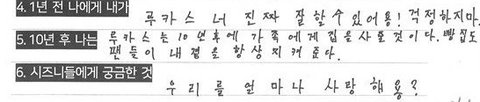 4. 1년 전 나에게 내가
루카스 너 진짜 잘할수있어용! 걱정하지마.
5. 10년 후 나는
루카스는 10년후에 가족에게집을사줄것이다. 빵집도
팬들이 내곁을 항상지켜준다.
6. 시즈니들에게 궁금한 것
우리를 얼마나 사랑해용?